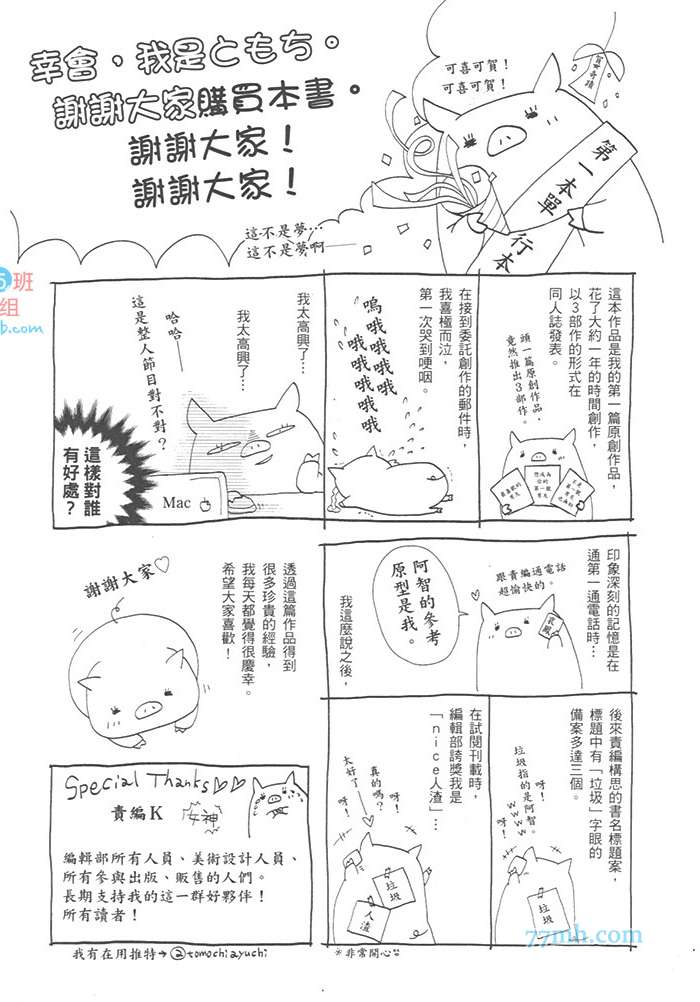 幸會，我是ともち。
謝謝大家購買本書。
謝謝大家！
謝謝大家！
可喜可賀！
可喜可賀！
賀
第一本單
行本
這不是夢…
這不是夢啊——
5班
組
b.com
這本作品是我的第一篇原創作品，
花了大約一年的時間創作，
以3部作的形式在
同人誌發表。
頭一篇原創作品，
竟然推出3部作。
想成為
你的
第一號
在接到委託創作的郵件時，
我喜極而泣，
第一次哭到哽咽。
嗚哦哦哦
哦哦哦哦
哦哦哦
我太高興了…
我太高興了…
哈哈——
這是整人節目對不對？
Mac
這樣對誰
有好處？
印象深刻的記憶是在
通第一通電話時…
跟責編通電話
超愉快的。
阿智的參考
原型是我。
我這麼說之後，
後來責編構思的書名標題案，
標題中有「垃圾」字眼的
備案多達三個。
垃圾指的是阿智。
wwww
呀！
呀！
垃圾
在試閱刊載時，
編輯部誇獎我是
「nice人渣」…
呀！
真的嗎？
太好了—
呀！
垃圾
人渣
※非常開心
透過這篇作品得到
很多珍貴的經驗，
我每天都覺得很慶幸。
希望大家喜歡！
謝謝大家♡
Special Thanks♡♡
責編K 女神
編輯部所有人員、美術設計人員、
所有參與出版、販售的人們。
長期支持我的這一群好夥伴！
所有讀者！
我有在用推特→@tomochiayuchi
77mh.com